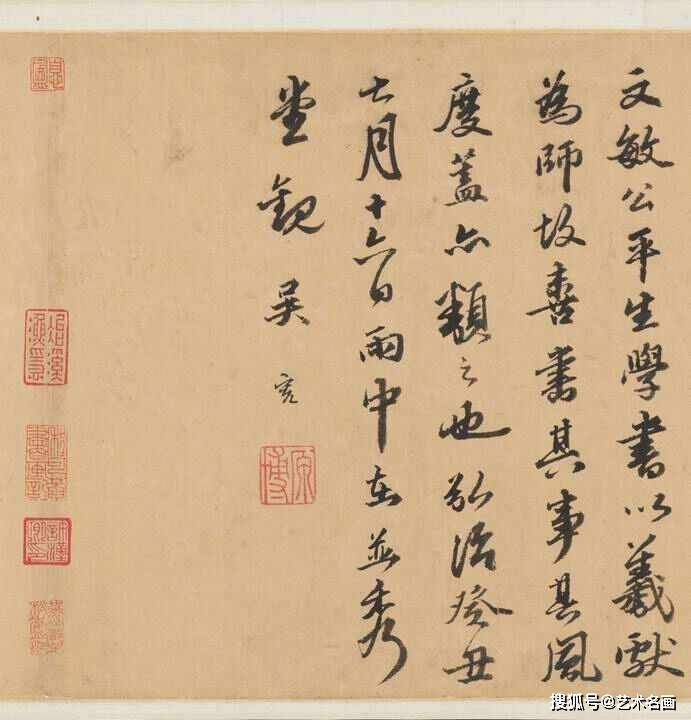 文敏公平生學書以羲獻
為師故喜書其事其風
度蓋亦類之也弘治癸丑
七月十六日雨中在並秀
堂觀吳寬
原博
搜狐号@艺术名画